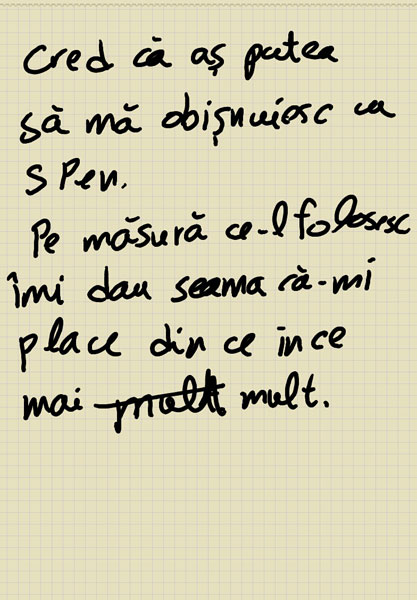 Cred că aș putea
să mă obișnuiesc cu
S Pen.
Pe măsură ce-l folosesc
îmi dau seama că-mi
place din ce în ce
mai mult mult.